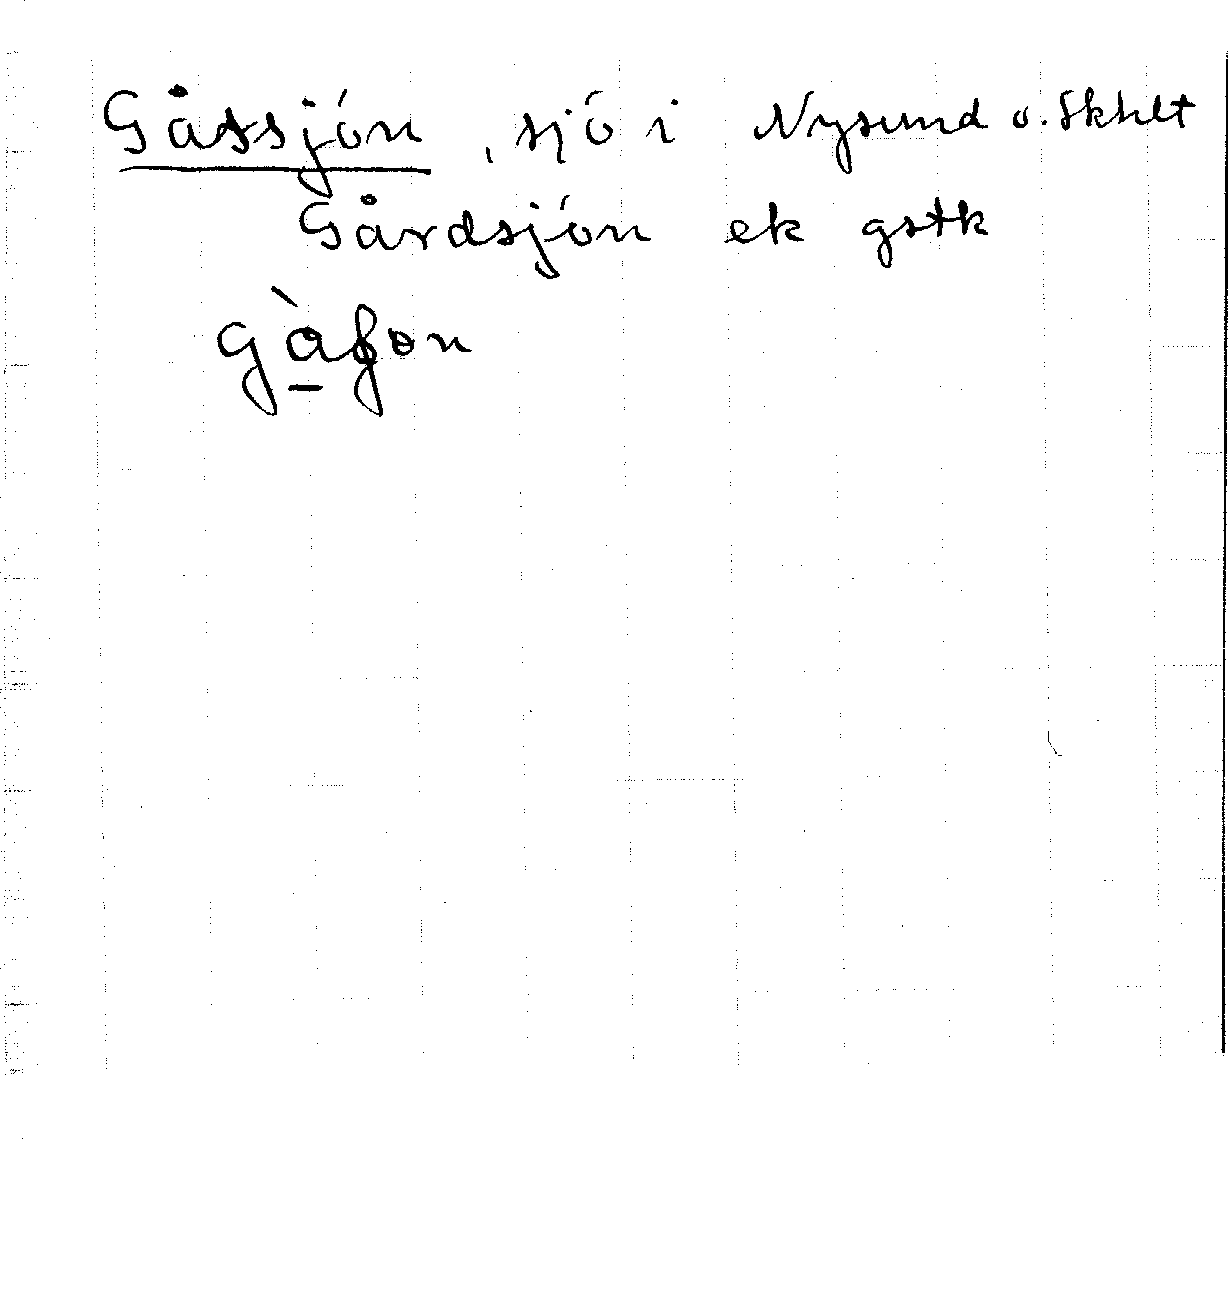 Gåssjón, sjó i Nysund o. Skhlt
Gårdsjón ek gstk
gàʃon